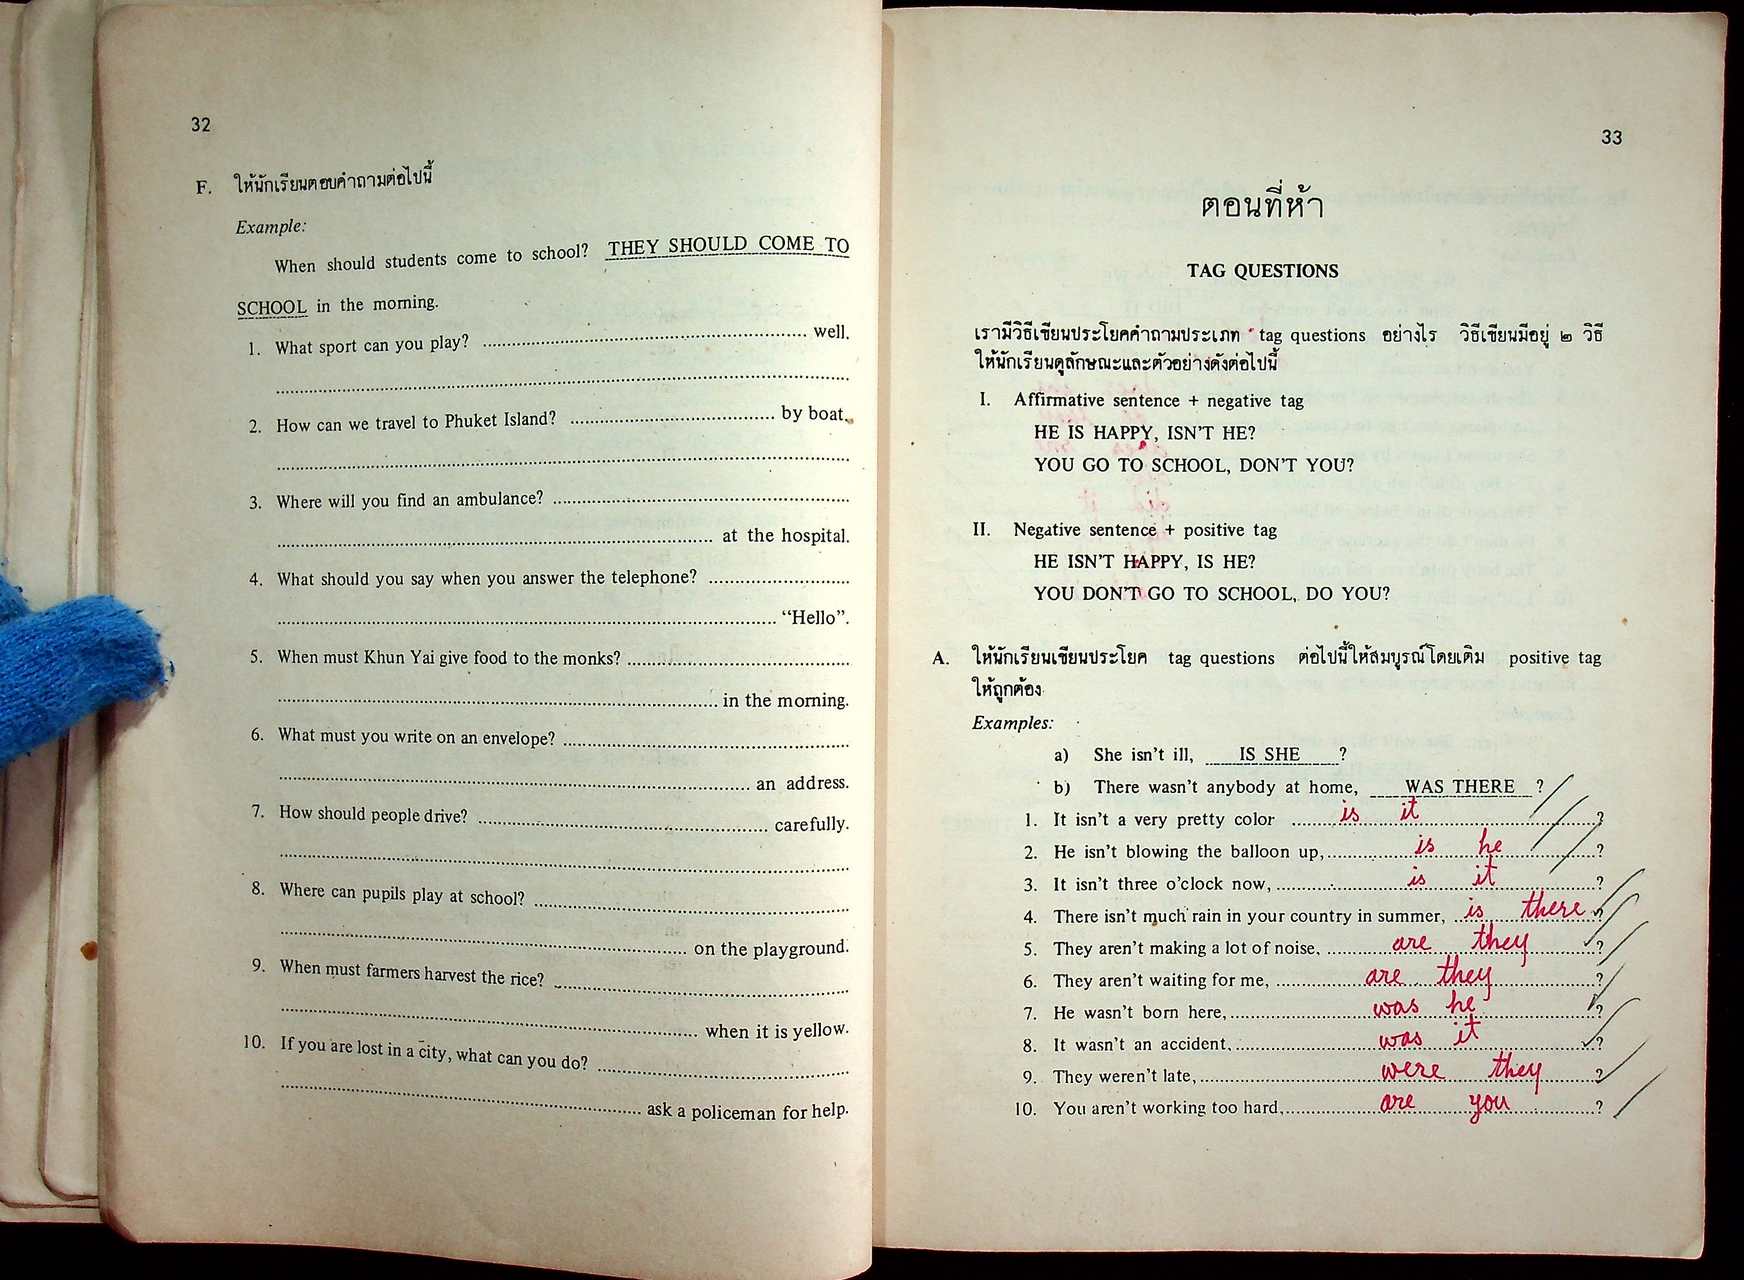 32
F. ให้นักเรียนตอบคำถามต่อไปนี้
Example:
When should students come to school? THEY SHOULD COME TO
SCHOOL in the morning.
1. What sport can you play? .......... well.
2. How can we travel to Phuket Island? .......... by boat.
3. Where will you find an ambulance? ..........
.......... at the hospital.
4. What should you say when you answer the telephone? ..........
.......... “Hello”.
5. When must Khun Yai give food to the monks? ..........
.......... in the morning.
6. What must you write on an envelope? ..........
.......... an address.
7. How should people drive? .......... carefully.
8. Where can pupils play at school? ..........
.......... on the playground.
9. When must farmers harvest the rice? ..........
.......... when it is yellow.
10. If you are lost in a city, what can you do? ..........
.......... ask a policeman for help.
33
ตอนที่ห้า
TAG QUESTIONS
เรามีวิธีเขียนประโยคคำถามประเภท tag questions อย่างไร วิธีเขียนมีอยู่ ๒ วิธี
ให้นักเรียนดูลักษณะและตัวอย่างดังต่อไปนี้
I. Affirmative sentence + negative tag
HE IS HAPPY, ISN'T HE?
YOU GO TO SCHOOL, DON'T YOU?
II. Negative sentence + positive tag
HE ISN'T HAPPY, IS HE?
YOU DON'T GO TO SCHOOL, DO YOU?
A. ให้นักเรียนเขียนประโยค tag questions ต่อไปนี้ให้สมบูรณ์โดยเติม positive tag
ให้ถูกต้อง
Examples:
a) She isn't ill, IS SHE ?
b) There wasn't anybody at home, WAS THERE ?
1. It isn't a very pretty color is it ?
2. He isn't blowing the balloon up, is he ?
3. It isn't three o'clock now, is it ?
4. There isn't much rain in your country in summer, is there ?
5. They aren't making a lot of noise, are they ?
6. They aren't waiting for me, are they ?
7. He wasn't born here, was he ?
8. It wasn't an accident, was it ?
9. They weren't late, were they ?
10. You aren't working too hard, are you ?